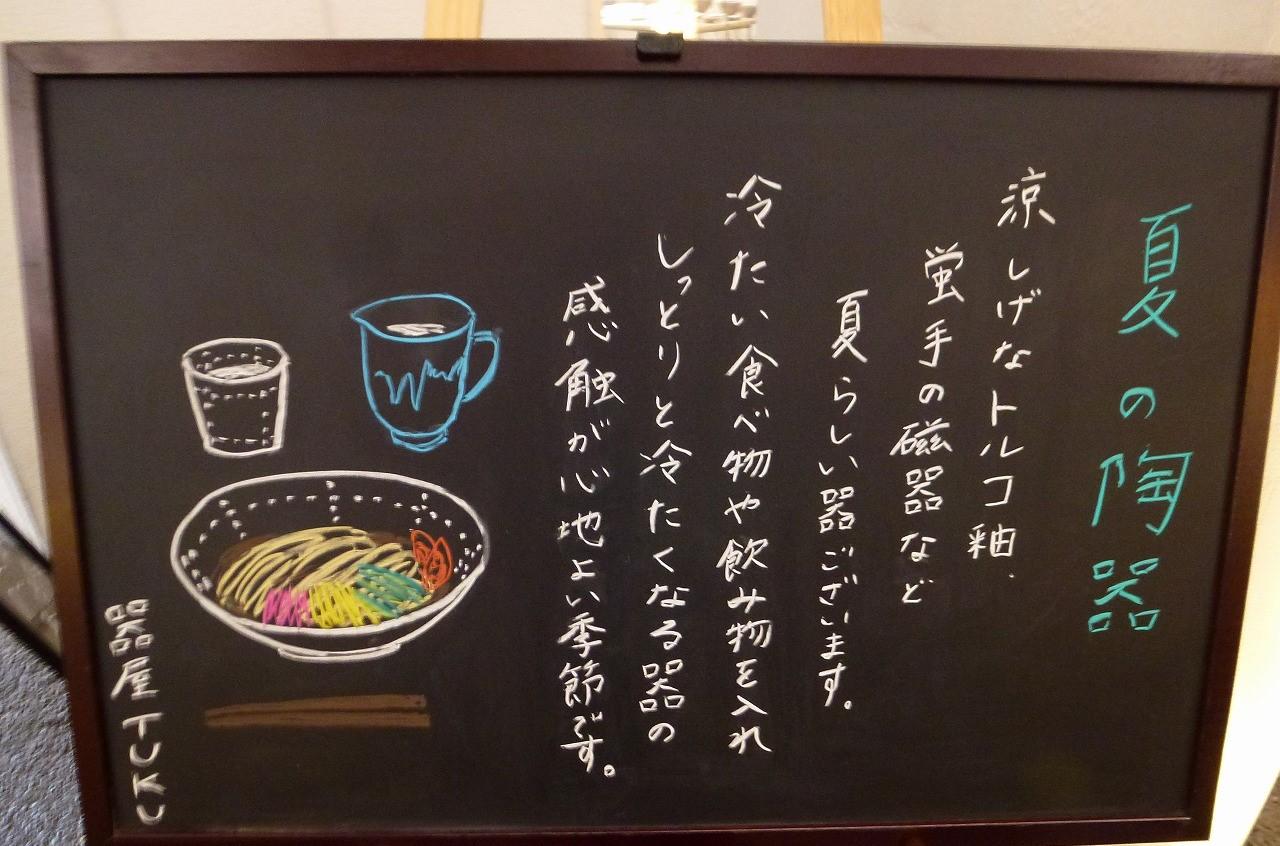 夏の陶器
涼しげなトルコ釉、
蛍手の磁器など
夏らしい器ございます。
冷たい食べ物や飲み物を入れ
しっとりと冷たくなる器の
感触が心地よい季節です。
器屋TUKU